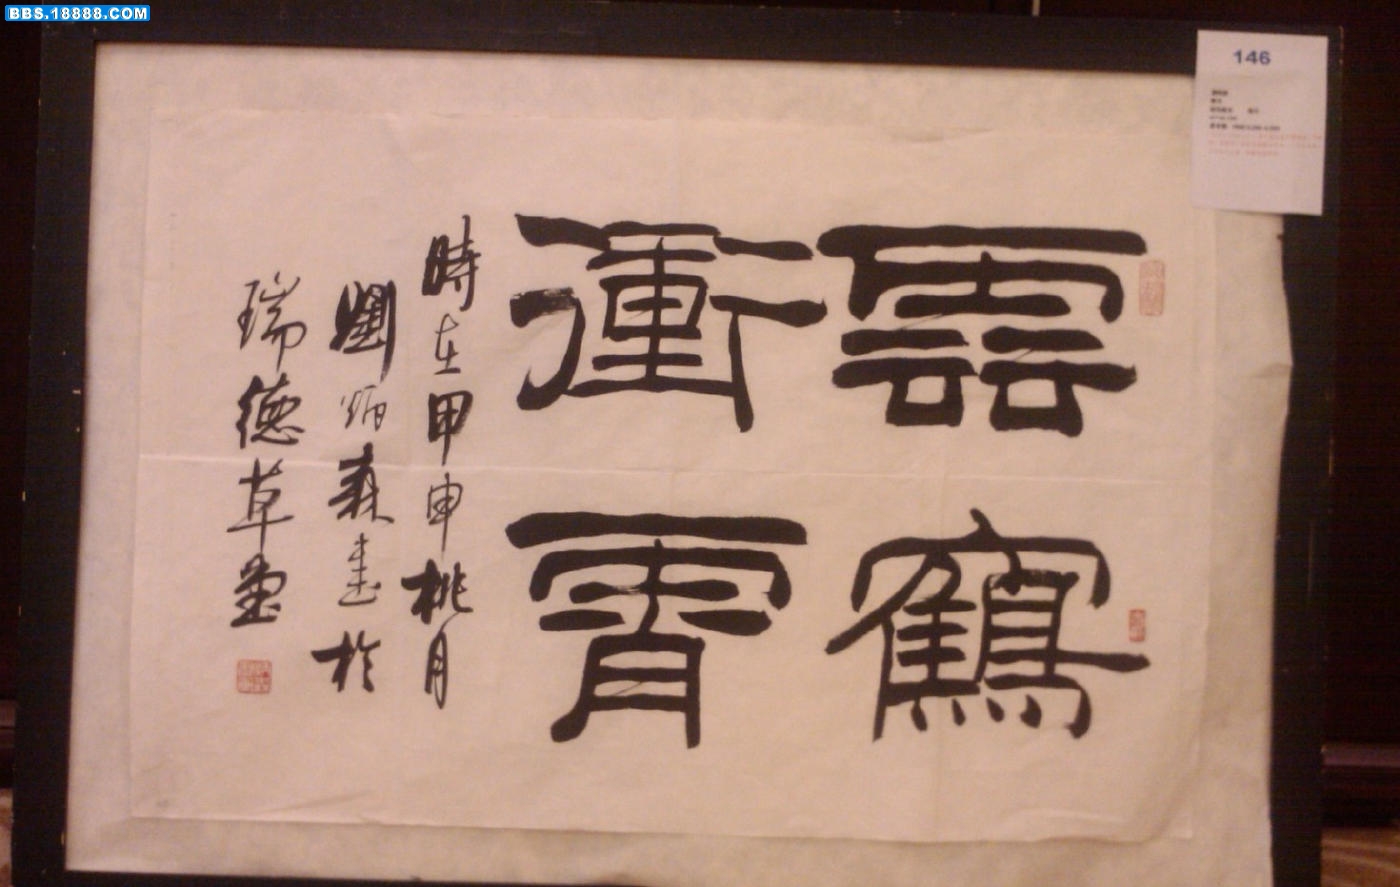 BBS.18888.COM
146
雲鶴
衝霄
時在甲申桃月
劉炳森書於
瑞德草堂